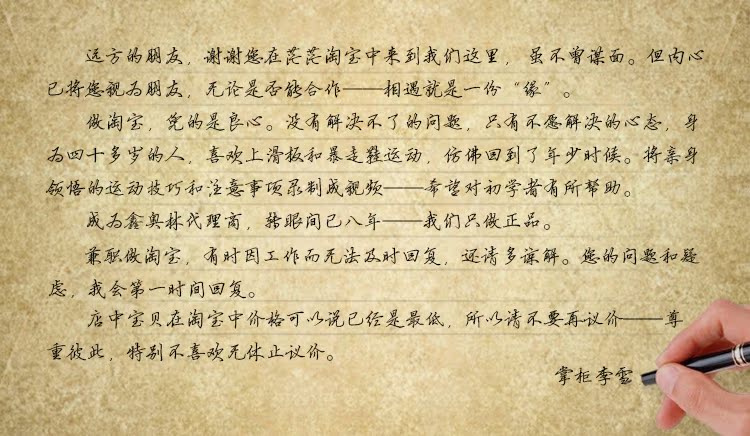 远方的朋友，谢谢您在茫茫淘宝中来到我们这里，虽不曾谋面。但内心
已将您视为朋友，无论是否能合作——相遇就是一份“缘”。
做淘宝，凭的是良心。没有解决不了的问题，只有不愿解决的心态，身
为四十多岁的人，喜欢上滑板和暴走鞋运动，仿佛回到了年少时候。将亲身
领悟的运动技巧和注意事项录制成视频——希望对初学者有所帮助。
成为鑫奥林代理商，转眼间已八年——我们只做正品。
兼职做淘宝，有时因工作而无法及时回复，还请多谅解。您的问题和疑
虑，我会第一时间回复。
店中宝贝在淘宝中价格可以说已经是最低，所以请不要再议价——尊
重彼此，特别不喜欢无休止议价。
掌柜李雪